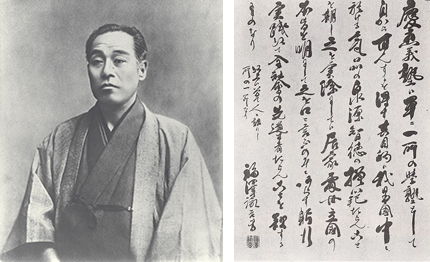 慶應義塾は單に一所の學塾として
自から甘んするを得す其目的は我日本國中に
於ける氣品の泉源智德の模範たらんことを
期し之を實際にしては居家處世立國の
本旨を明にして之を口に言ふのみにあらす躬行
實踐以て全社會の先導者たらんことを欲する
ものなり
以上は曾て人に語りし
所の一節なり
福澤諭吉書